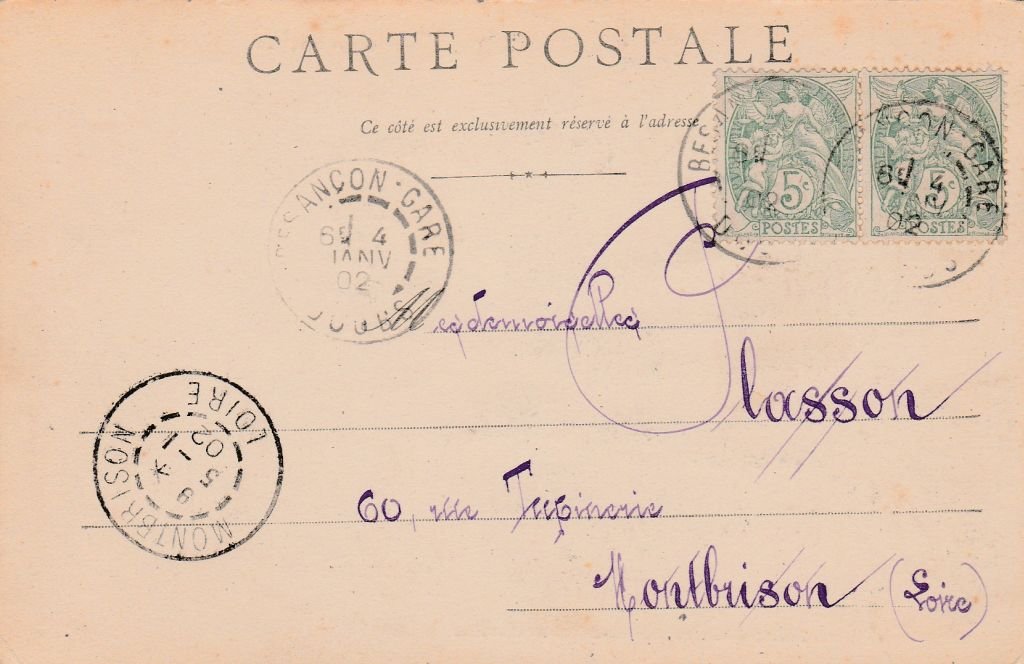 CARTE POSTALE
Ce côté est exclusivement réservé à l'adresse
5c
POSTES
5c
POSTES
BESANÇON - GARE
6E 4
JANV
02
DOUBS
Mesdemoiselles
Plasson
60, rue Tupinerie
Montbrison (Loire)
MONTBRISON
LOIRE
5 - 1
02